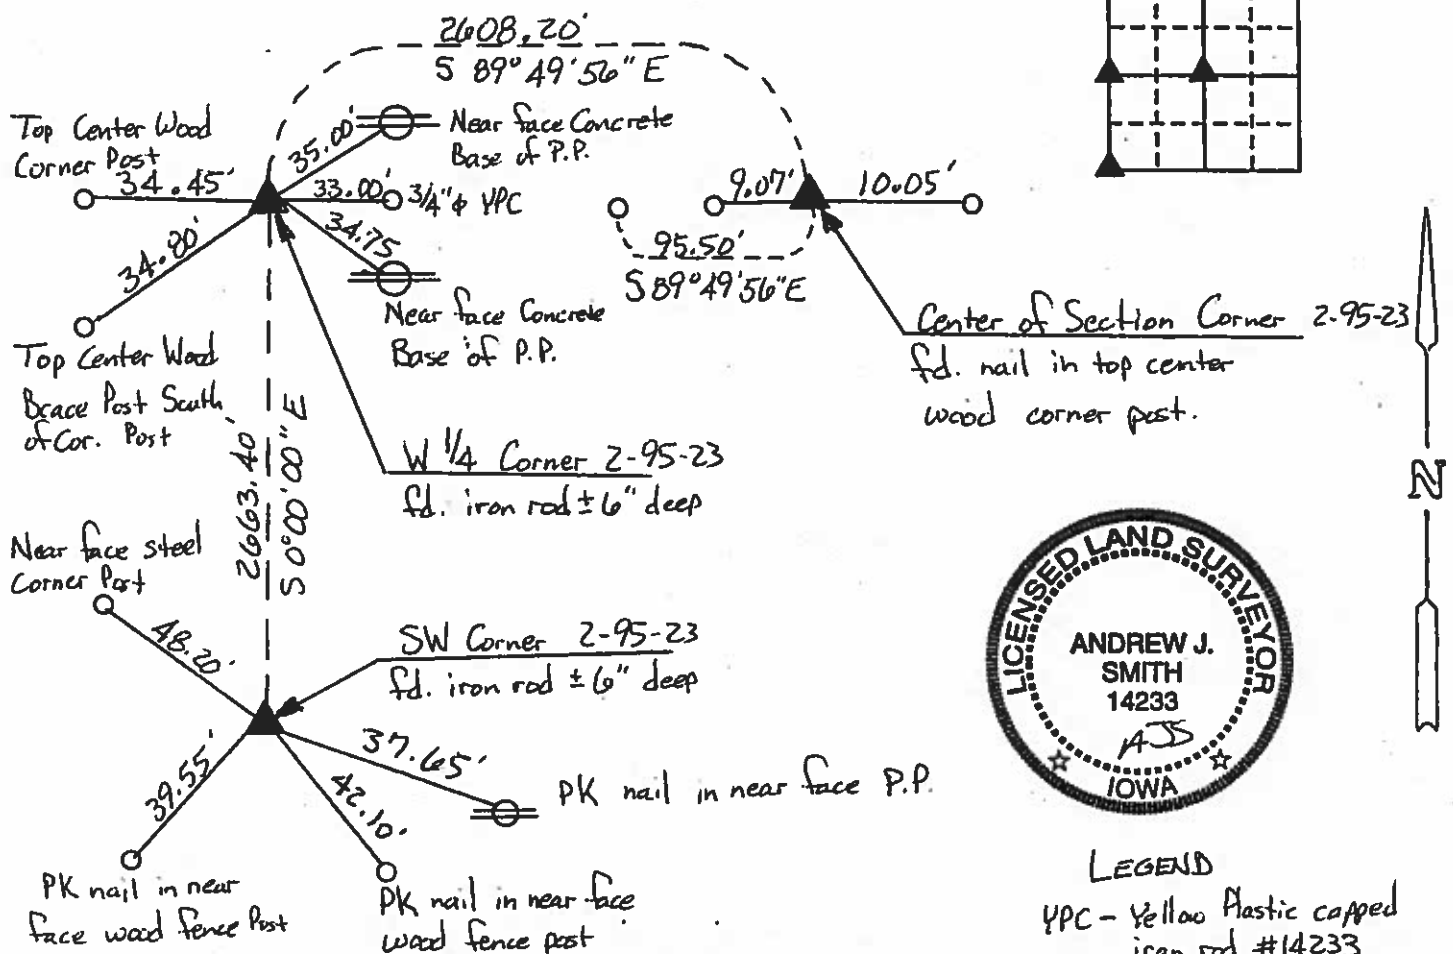 2608.20'
S 89°49'56" E
Top Center Wood
Corner Post
34.45'
35.00'
Near face Concrete
Base of P.P.
33.00'
3/4"ϕ YPC
34.75
34.80'
Near face Concrete
Base of P.P.
Top Center Wood
Brace Post South
of Cor. Post
9.07'
10.05'
95.50'
S 89°49'56" E
Center of Section Corner 2-95-23
fd. nail in top center
wood corner post.
W 1/4 Corner 2-95-23
fd. iron rod ± 6" deep
2663.40'
S 0°00'00" E
N
Near face steel
Corner Post
48.20'
SW Corner 2-95-23
fd. iron rod ± 6" deep
37.65'
PK nail in near face P.P.
39.55'
42.10'
PK nail in near
face wood fence Post
PK nail in near face
wood fence post
LICENSED LAND SURVEYOR
ANDREW J.
SMITH
14233
AJS
IOWA
LEGEND
YPC - Yellow Plastic capped
iron rod #14233